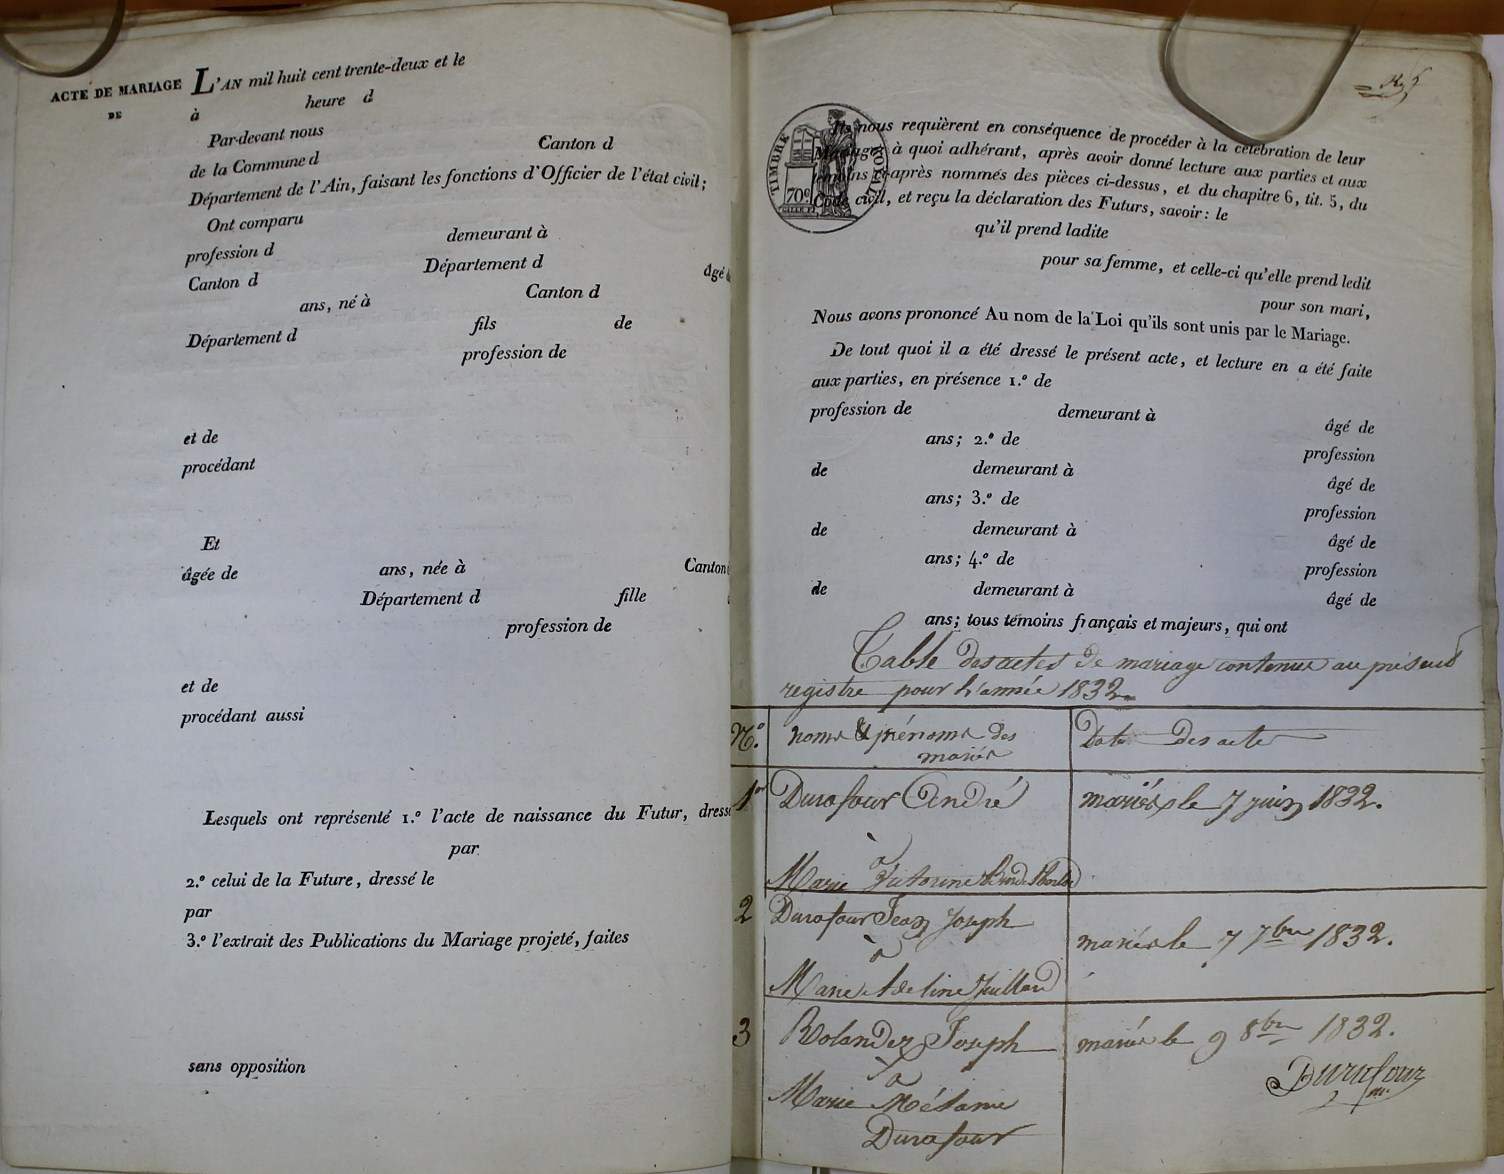 ACTE DE MARIAGE
DE
L'AN mil huit cent trente-deux et le
à heure d
Par-devant nous
de la Commune d Canton d
Département de l'Ain, faisant les fonctions d'Officier de l'état civil;
Ont comparu
profession d demeurant à
Canton d Département d âgé
ans, né à Canton d
Département d fils de
profession de
et de
procédant
Et
âgée de ans, née à Canton
Département d fille
profession de
et de
procédant aussi
Lesquels ont représenté 1.º l'acte de naissance du Futur, dressé
par
2.º celui de la Future, dressé le
par
3.º l'extrait des Publications du Mariage projeté, faites
sans opposition
TIMBRE ROYAL
70c
Ils nous requièrent en conséquence de procéder à la célébration de leur
Mariage, à quoi adhérant, après avoir donné lecture aux parties et aux
témoins ci-après nommés des pièces ci-dessus, et du chapitre 6, tit. 5, du
Code civil, et reçu la déclaration des Futurs, savoir: le
qu'il prend ladite
pour sa femme, et celle-ci qu'elle prend ledit
pour son mari,
Nous avons prononcé Au nom de la Loi qu'ils sont unis par le Mariage.
De tout quoi il a été dressé le présent acte, et lecture en a été faite
aux parties, en présence 1.º de
profession de demeurant à âgé de
ans; 2.º de profession
de demeurant à âgé de
ans; 3.º de profession
de demeurant à âgé de
ans; 4.º de profession
de demeurant à âgé de
ans; tous témoins français et majeurs, qui ont
Table des actes de mariage contenue au présent
registre pour l'année 1832.
N.º noms & prénoms des mariés Date des actes
1er Durafour André mariés le 7 juin 1832.
à
Marie Victorine
2 Durafour Jean Joseph mariés le 7 7bre 1832.
à
Marie Adeline Juillard
3 Rolandez Joseph mariés le 9 8bre 1832.
à
Marie Mélanie
Durafour
Durafour